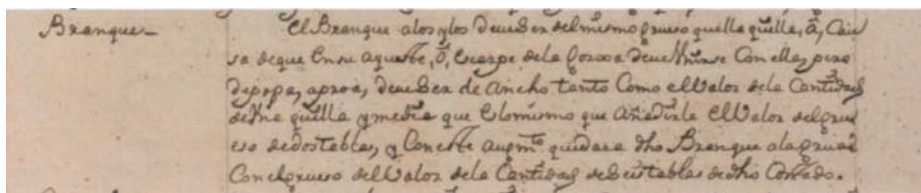 Branque
El Branque alos ylos deue Ser del mismo grueso quella quilla, â, Cau
sa deque En su aquste, ô, Escarpe dela Roxa deue Vnirse Con ella, pero
depopa, aproa, deue Ser de Ancho tanto Como el Valor dela Cantidad
de Vna quilla y media que Eslomismo que Añadirle El Valor del grue
so de dos tablas, y Con este augmto. quedara dho Branque ala prua
Con el grueso del Valor dela Cantidad de Seis tablas de dho Costado.